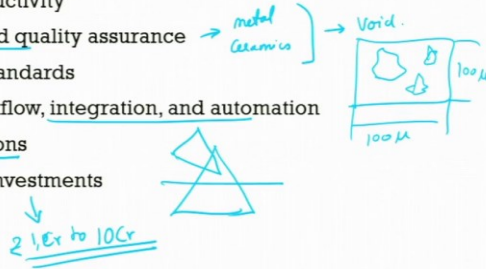 ctivity
d quality assurance → metal
Ceramics → Void.
andards
100 μ
flow, integration, and automation
ons
100 μ
nvestments
1 Cr to 10 Cr